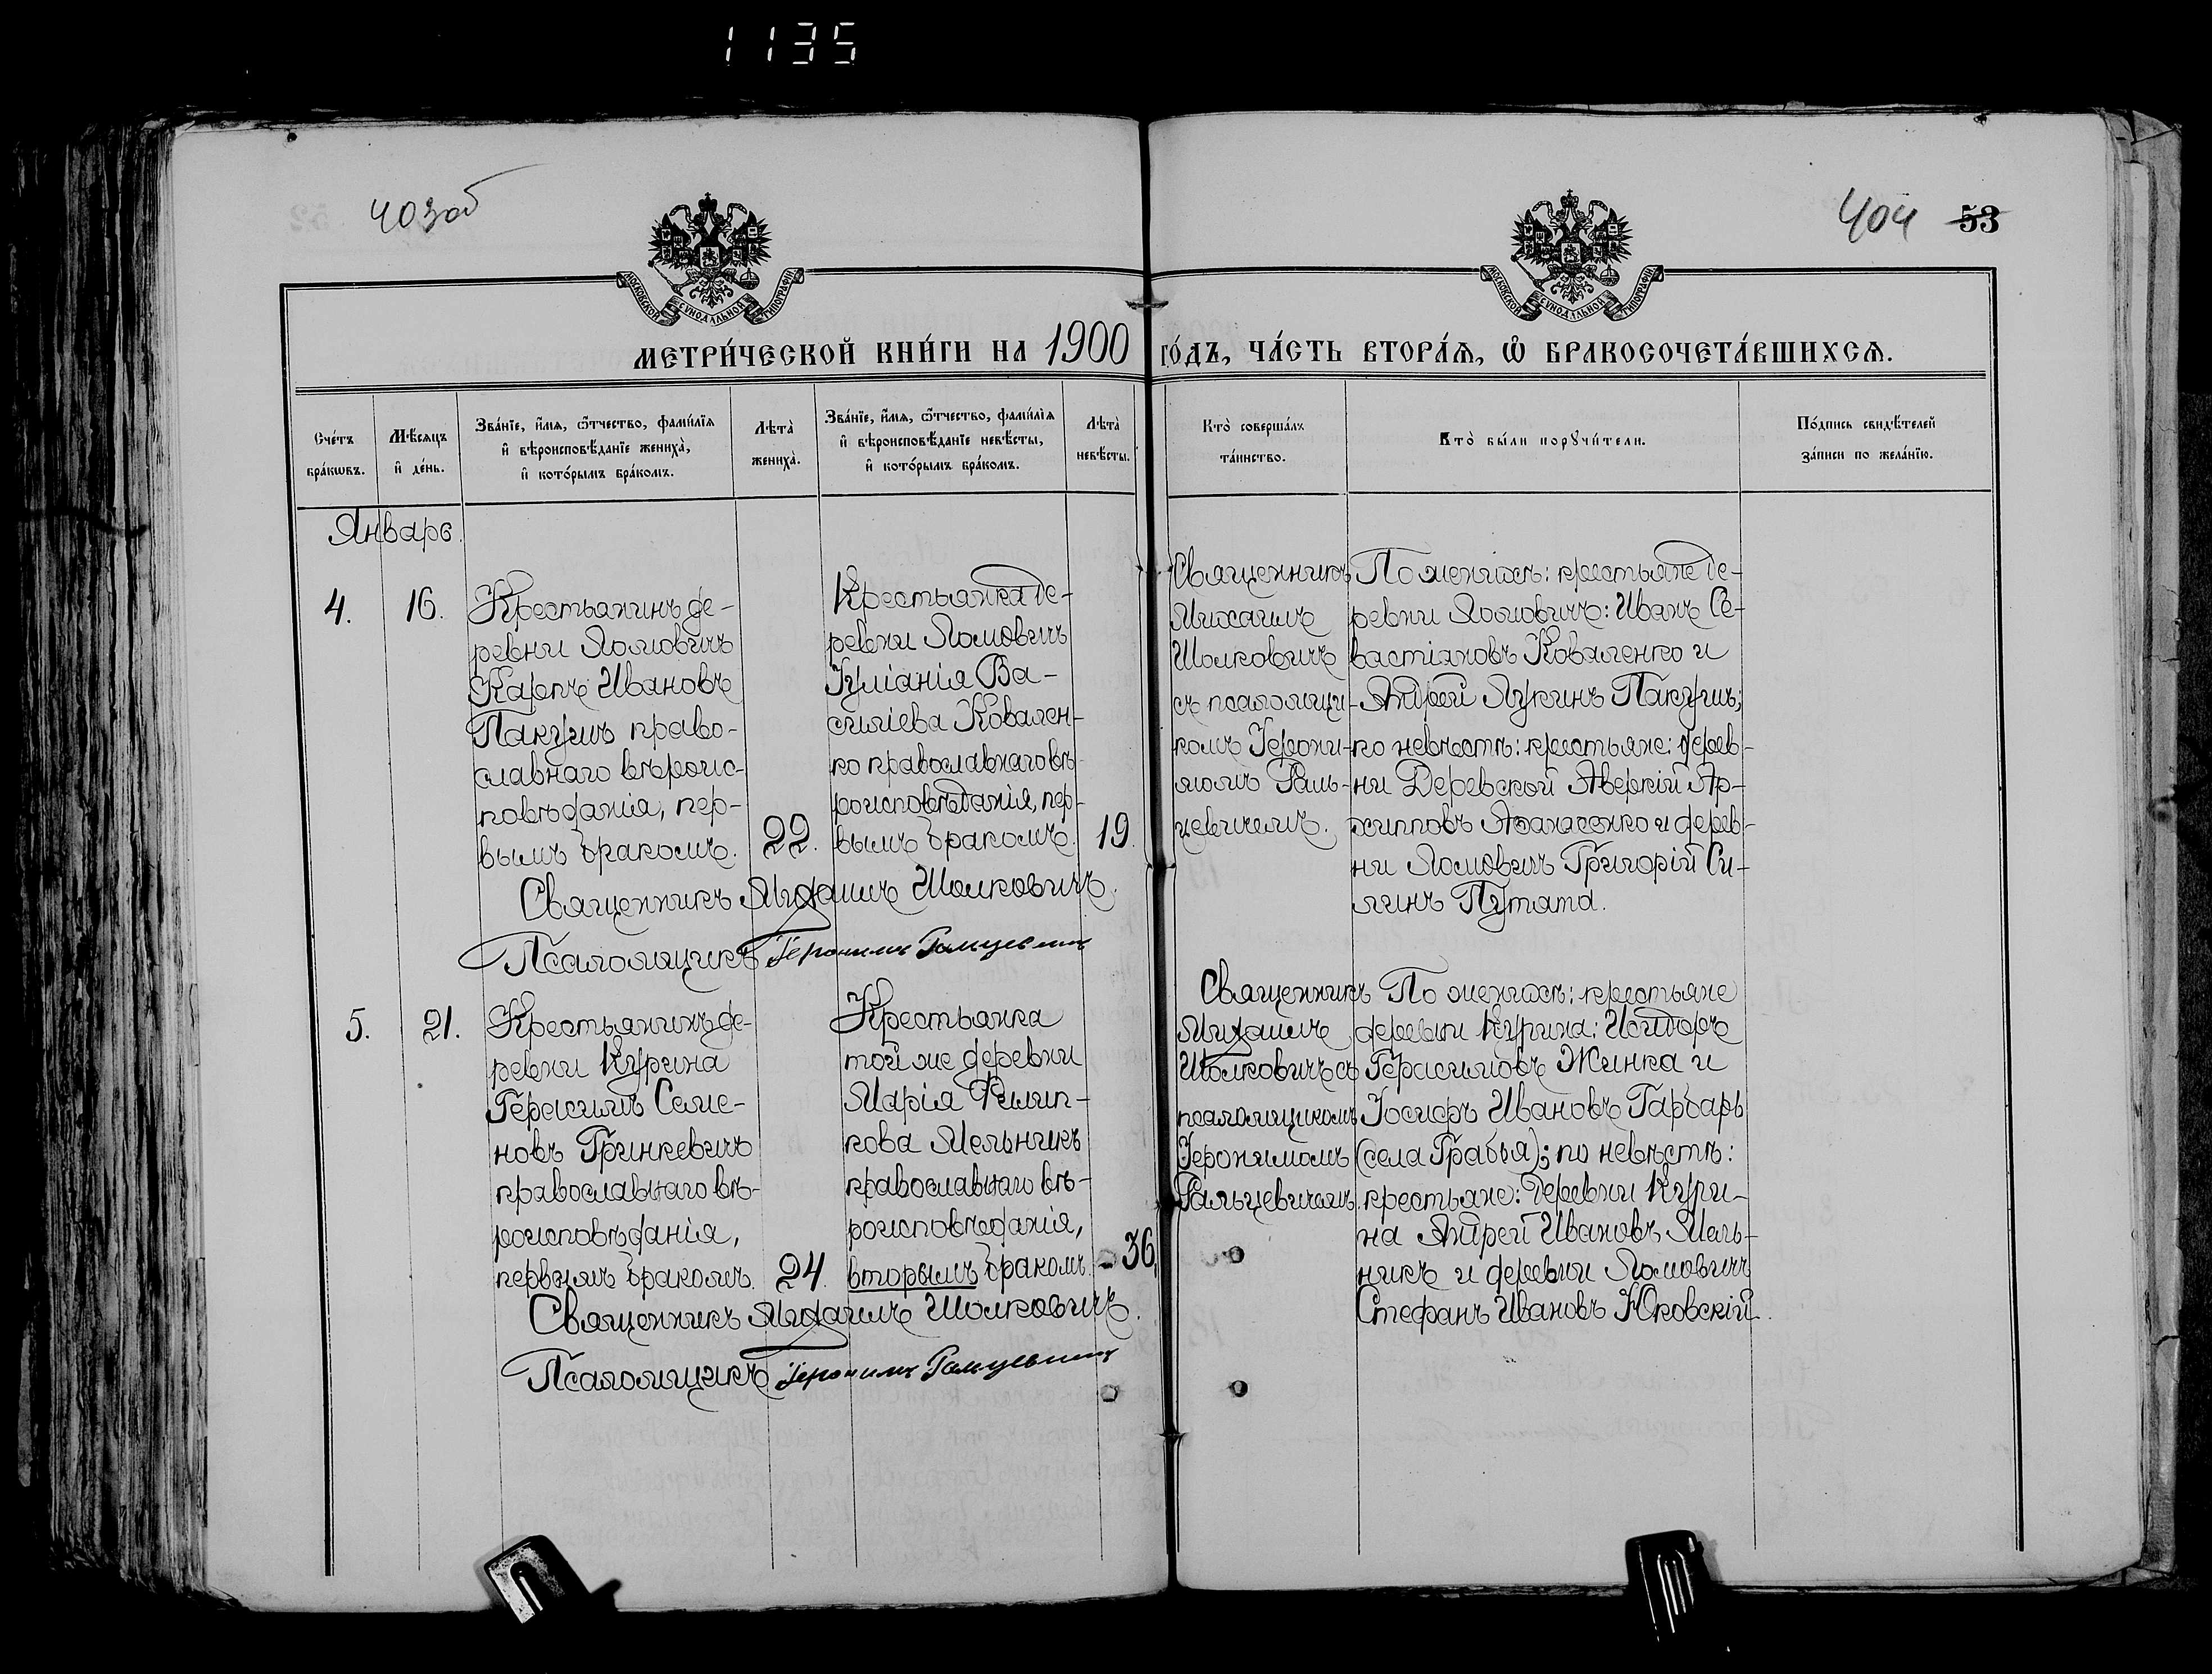 1135
403об
404 53
МОСКОВСКОЙ СѴНОДАЛЬНОЙ ТИПОГРАФІИ
МОСКОВСКОЙ СѴНОДАЛЬНОЙ ТИПОГРАФІИ
МЕТРИ́ЧЕСКОЙ КНИ́ГИ НА 1900 ГО́ДЪ, ЧА́СТЬ ВТОРА́Ѧ, Ѽ БРАКОСОЧЕТА́ВШИХСѦ.
Сче́тъ
бра́кѡвъ.
Мѣ́сяцъ
и҆ де́нь.
Зва́нїе, и҆́мѧ, ѻ҆́тчество, фами́лїѧ
и҆ вѣроисповѣ́данїе жениха̀,
и҆ кото́рымъ бра́комъ.
Лѣта̀
жениха̀.
Зва́нїе, и҆́мѧ, ѻ҆́тчество, фами́лїѧ
и҆ вѣроисповѣ́данїе невѣ́сты,
и҆ кото́рымъ бра́комъ.
Лѣта̀
невѣ́сты.
Кто̀ соверша́лъ
та́инство.
Кто̀ бы́ли порꙋчи́тели.
По́дпись свидѣ́телей
за́писи по жела́нїю.
Январь.
4.
16.
Крестьянинъ де-
ревни Ломовичъ
Карпъ Ивановъ
Пакушъ право-
славнаго вѣроис-
повѣданія, пер-
вымъ бракомъ.
22.
Крестьянка де-
ревни Ломовичъ
Іуліанія Ва-
силіева Ковален-
ко православнаго вѣ-
роисповѣданія, пер-
вымъ бракомъ.
19.
Священникъ
Михаилъ
Шолковичъ
съ псаломщи-
комъ Іерони-
момъ Галь-
цевичемъ.
По женихѣ: крестьяне де-
ревни Ломовичъ: Иванъ Се-
вастіановъ Коваленко и
Андрей Лукинъ Пакушъ;
по невѣстѣ: крестьяне: дерев-
ни Деревской Аверкій Ар-
хипповъ Аѳанасенко и дерев-
ни Ломовичъ Григорій Си-
линъ Путята.
Священникъ Михаилъ Шолковичъ.
Псаломщикъ Іеронимъ Гальцевичъ
5.
21.
Крестьянинъ де-
ревни Курина
Герасимъ Семе-
новъ Гринкевичъ
православнаго вѣ-
роисповѣданія,
первымъ бракомъ.
24.
Крестьянка
той же деревни
Марія Филип-
пова Мельникъ
православнаго вѣ-
роисповѣданія,
вторымъ бракомъ.
36.
Священникъ
Михаилъ
Шолковичъ съ
псаломщикомъ
Іеронимомъ
Гальцевичемъ.
По женихѣ: крестьяне
деревни Курина: Исидоръ
Герасимовъ Жинка и
Іосифъ Ивановъ Гарбарь
(села Грабья); по невѣстѣ:
крестьяне: деревни Кури-
на Андрей Ивановъ Мель-
никъ и деревни Ломовичъ
Стефанъ Ивановъ Юковскій.
Священникъ Михаилъ Шолковичъ.
Псаломщикъ Іеронимъ Гальцевичъ